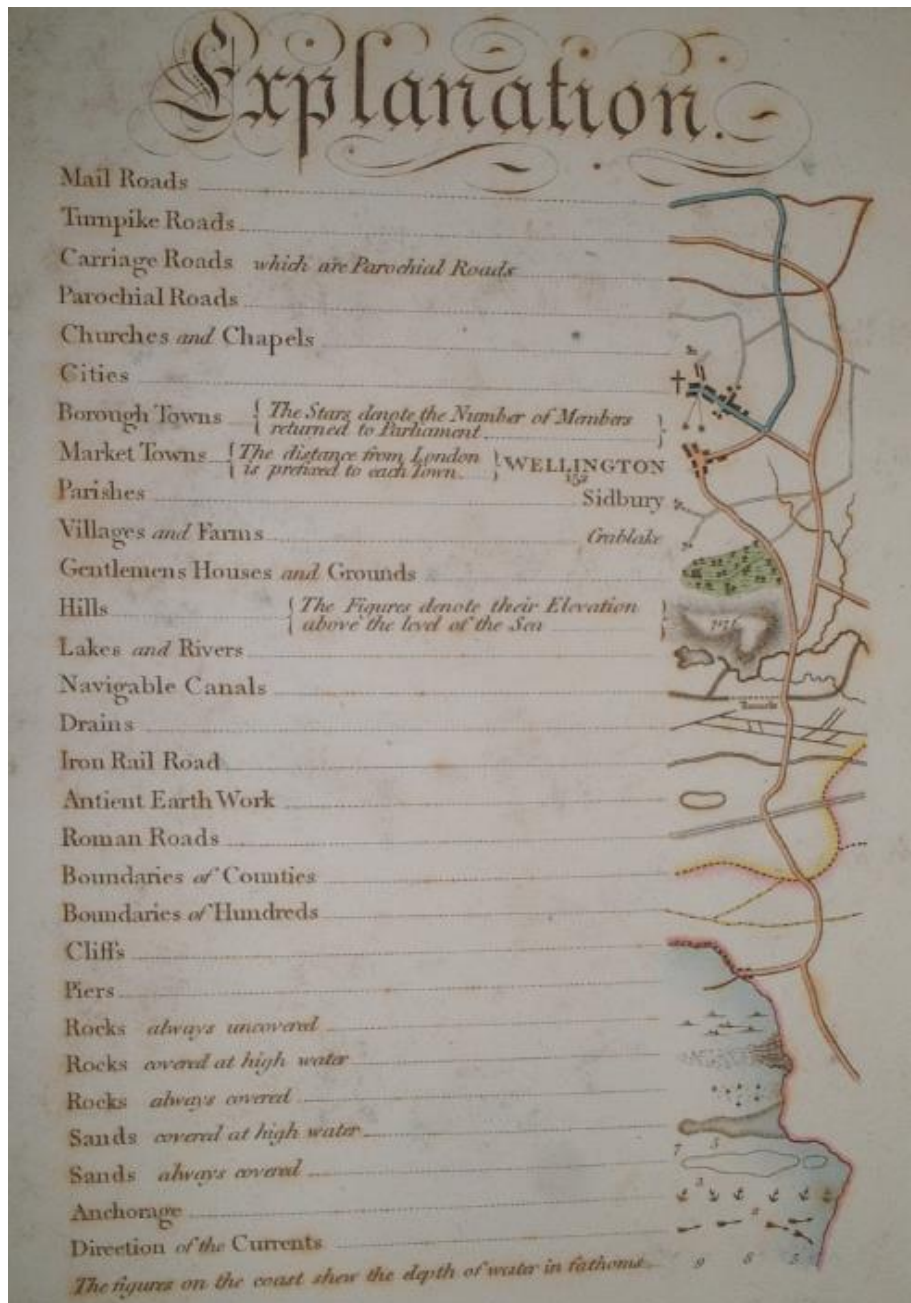 Explanation.
Mail Roads
Turnpike Roads
Carriage Roads which are Parochial Roads
Parochial Roads
Churches and Chapels
Cities
Borough Towns { The Stars denote the Number of Members
returned to Parliament }
Market Towns { The distance from London
is prefixed to each Town. } WELLINGTON
152
Parishes Sidbury
Villages and Farms Crablake
Gentlemens Houses and Grounds
Hills { The Figures denote their Elevation
above the level of the Sea }
Lakes and Rivers
Navigable Canals
Drains
Iron Rail Road
Antient Earth Work
Roman Roads
Boundaries of Counties
Boundaries of Hundreds
Cliffs
Piers
Rocks always uncovered
Rocks covered at high water
Rocks always covered
Sands covered at high water
7 5
Sands always covered
3
Anchorage
Direction of the Currents
The figures on the coast shew the depth of water in fathoms. 9 8 5